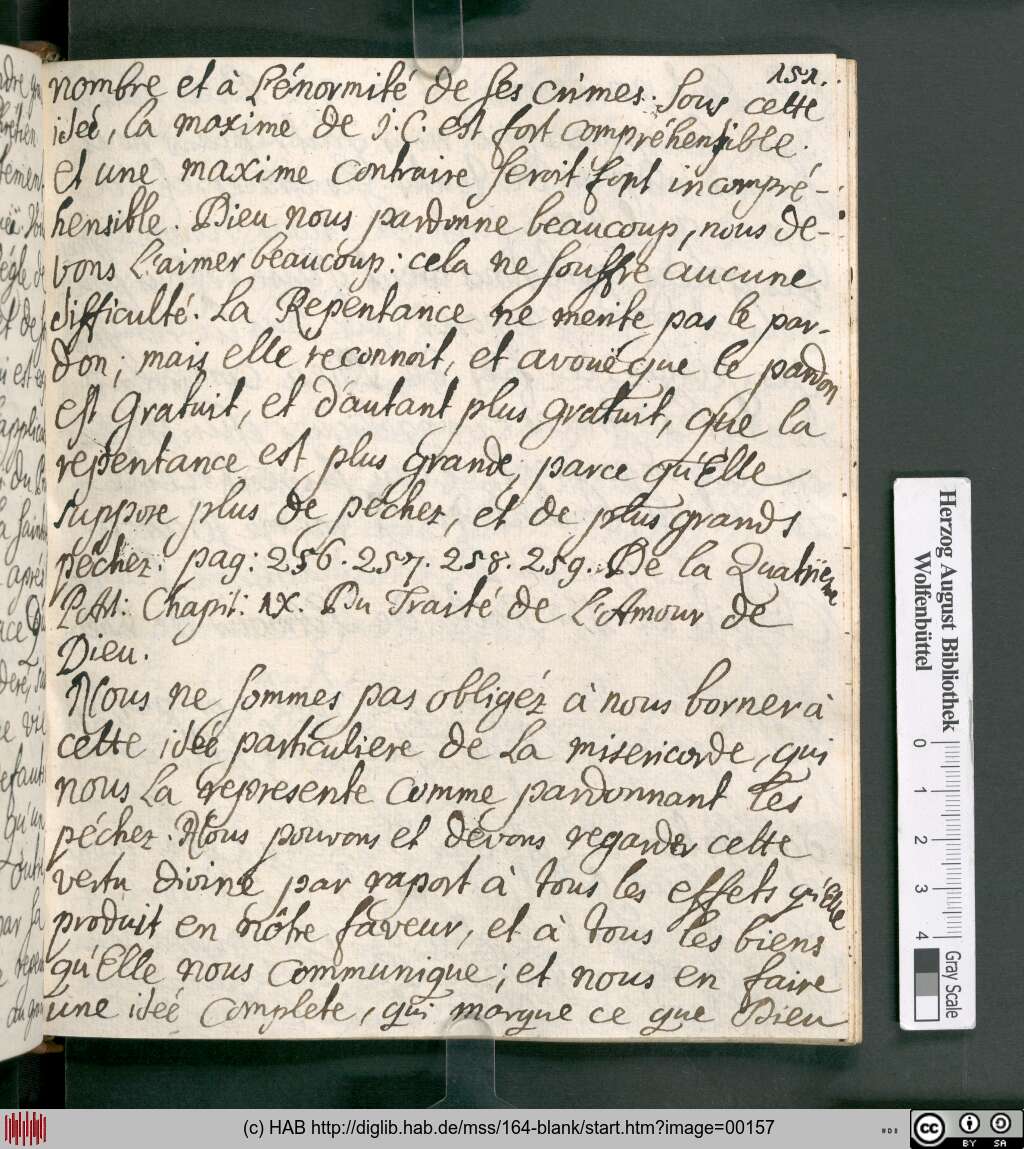 151.
nombre et à L'énormité de ses crimes. Sous cette
ideé, la maxime de J. C. est fort compréhensible.
et une maxime contraire seroit fort incompré-
hensible. Dieu nous pardonne beaucoup, nous de-
vons L'aimer beaucoup: cela ne souffre aucune
difficulté. La Repentance ne merite pas le par-
don; mais elle reconnoit, et avouë que le pardon
est Gratuit, et d'autant plus gratuit, que la
repentance est plus grande, parce qu'Elle
suppose plus de péchez, et de plus grands
péchez: pag: 256. 257. 258. 259. De la Quatriëm
PArt: Chapit: IX. Du Traité de L'Amour de
Dieu.
Nous ne sommes pas obligéz à nous borner à
cette ideé particuliere de La misericorde, qui
nous La represente comme pardonnant les
péchez. Nous pouvons et dévons regarder cette
vertu divine par raport à tous les effets qu'Elle
produit en nôtre faveur, et à tous les biens
qu'Elle nous communique; et nous en faire
une ideé complete, qui marque ce que Dieu
Herzog August Bibliothek
Wolfenbüttel
0 1 2 3 4
Gray Scale
(c) HAB http://diglib.hab.de/mss/164-blank/start.htm?image=00157
cc BY SA